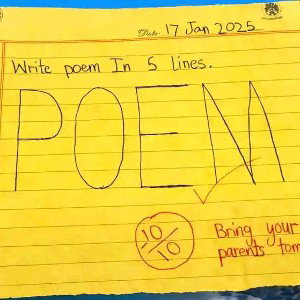 Date 17 Jan 2025
Write poem In 5 lines.
POEM
10/10
Bring your
parents tom